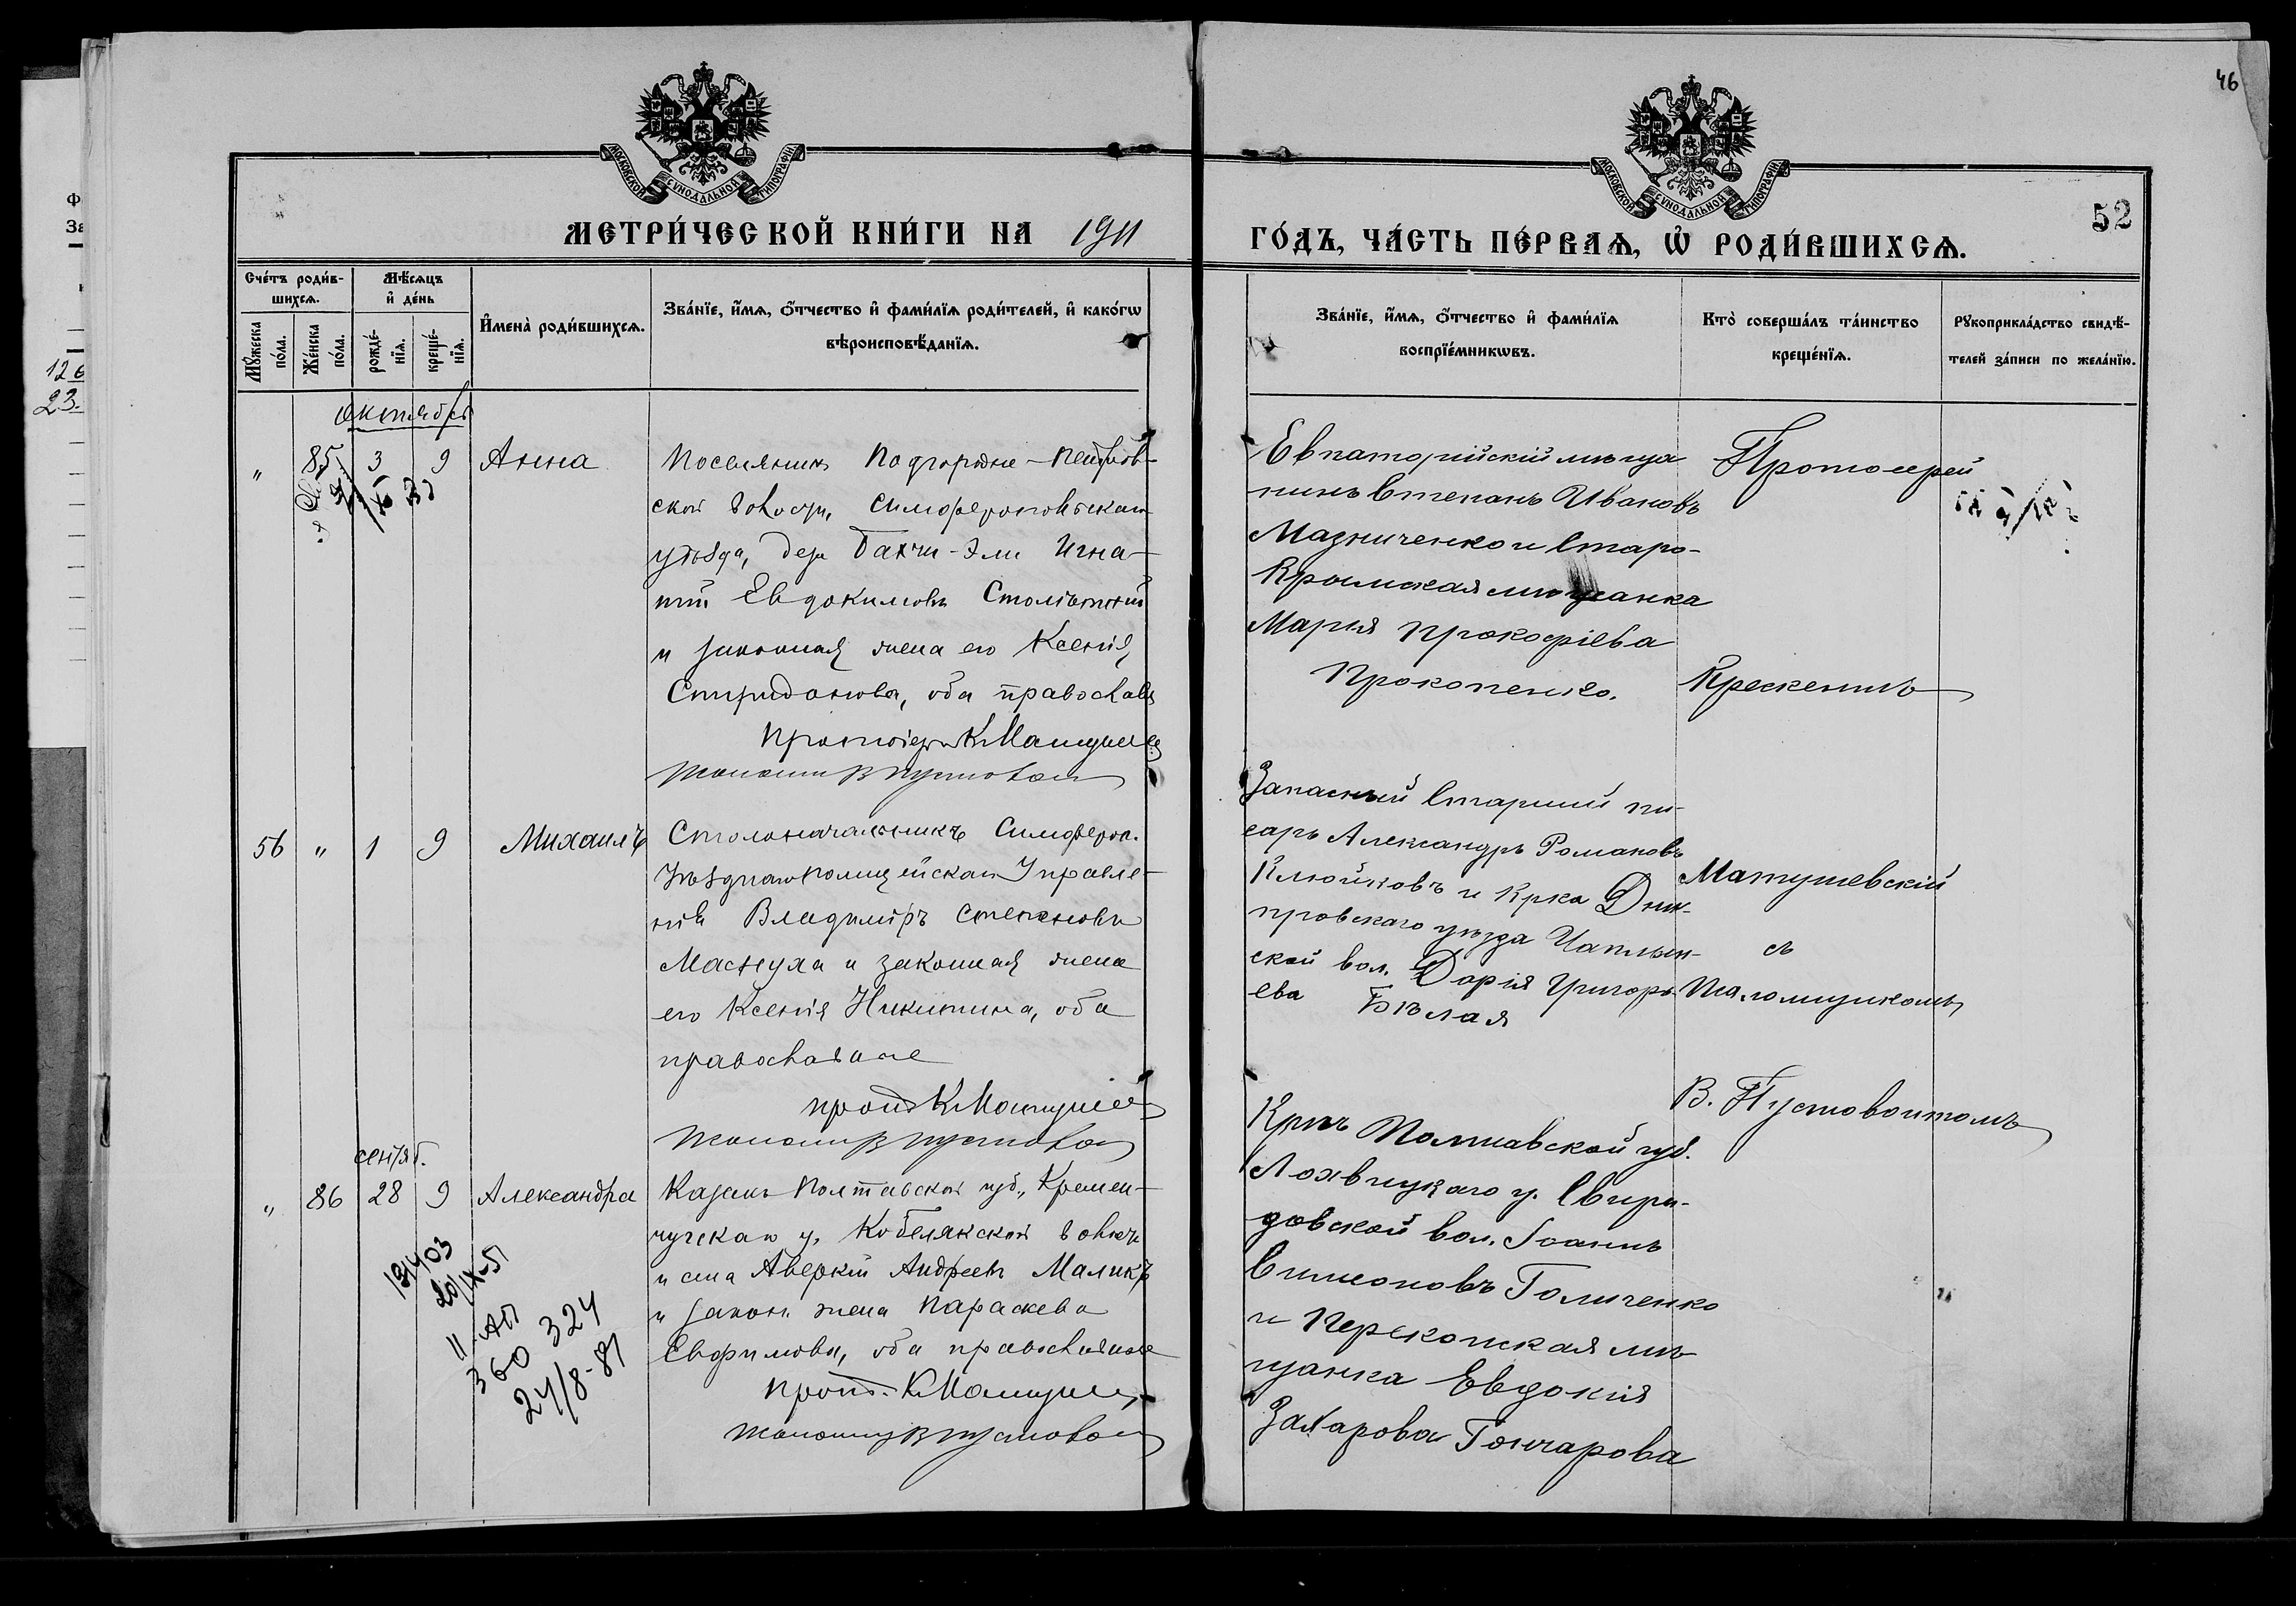 46
52
МОСКОВСКОЙ СѴНОДАЛЬНОЙ ТИПОГРАФІИ
МОСКОВСКОЙ СѴНОДАЛЬНОЙ ТИПОГРАФІИ
МЕТРИ́ЧЕСКОЙ КНИ́ГИ НА 1911
ГО́ДЪ, ЧА́СТЬ ПЕ́РВАѦ, Ѡ҆ РОДИ́ВШИХСѦ.
Сче́тъ роди́в-
шихсѧ.
Мꙋ́жеска по́ла.
Же́нска по́ла.
Мѣ́сѧцъ
и҆ де́нь
рожде́-
нїѧ.
креще́-
нїѧ.
И҆мена̀ роди́вшихсѧ.
Зва́нїе, и҆́мѧ, ѻ҆́тчество и҆ фами́лїѧ роди́телей, и҆ како́гѡ
вѣроисповѣ́данїѧ.
Зва́нїе, и҆́мѧ, ѻ҆́тчество и҆ фами́лїѧ
воспрїе́мникѡвъ.
Кто̀ соверша́лъ та́инство
креще́нїѧ.
Рꙋкоприкла́дство свидѣ́-
телей за́писи по жела́нїю.
126
23.
октябрь
" 85 3 9 Анна
Поселянинъ Подгородне-Петров-
ской волости, Симферопольскаго
уѣзда, дер Бахчи-Эли Игна-
тій Евдокимовъ Столѣтній
и законная жена его Ксенія
Спиридонова, оба православн
Протоіерей К Матуше
Псаломщ В Пустовой
Евпаторійскій мѣща
нинъ Степанъ Ивановъ
Мазниченко и Старо-
Крымская мѣщанка
Марія Прокофіева
Прокопенко.
Протоіерей
Крескентъ
Матушевскій
съ
Псаломщикомъ
В. Пустовоитомъ
56 " 1 9 Михаилъ
Столоначальникъ Симфероп.
Уѣзднаго Полицейскаго Управле-
нія Владиміръ Степановъ
Маснуха и законная жена
его Ксенія Никитина, оба
православные
прот К Матушев
Псаломщ В Пустовой
Запасный Старшій пи-
сарь Александръ Романовъ
Клюйковъ и Крка Днѣ-
провскаго уѣзда Чаплин-
ской вол. Дарія Григорь
ева Бѣлая
сентяб.
" 86 28 9 Александра
Казакъ Полтавской губ., Кремен-
чугскаго у. Кобелякской волости
и села Аверкій Андреевъ Маликъ
и законн жена Параскева
Евфимова, оба православные
прот. К Матуше
Псаломщ В Пустовой
Крнъ Полтавской губ.
Лохвицкаго у. Свири-
довской вол. Іоаннъ
Симеоновъ Голиченко
и Перекопская мѣ
щанка Евдокія
Захарова Гончарова
131403
20/IX-51
II-АП
360324
24/8-81